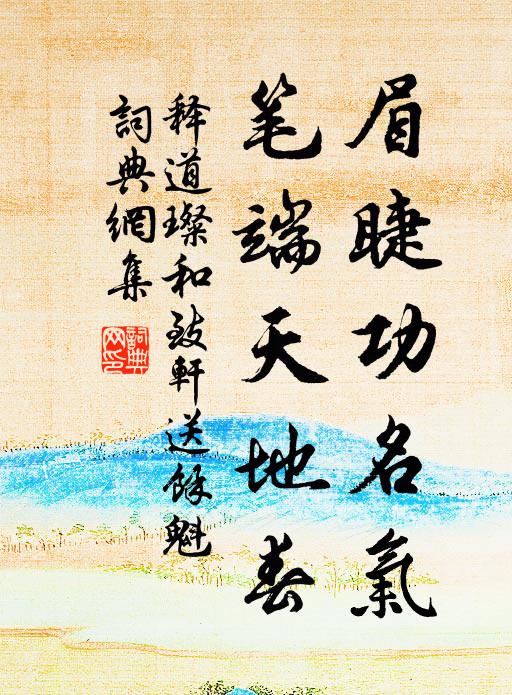 眉睫功名氣
笔端天地春
释道璨和致軒送餘魁
詞典網集
詞典
网印